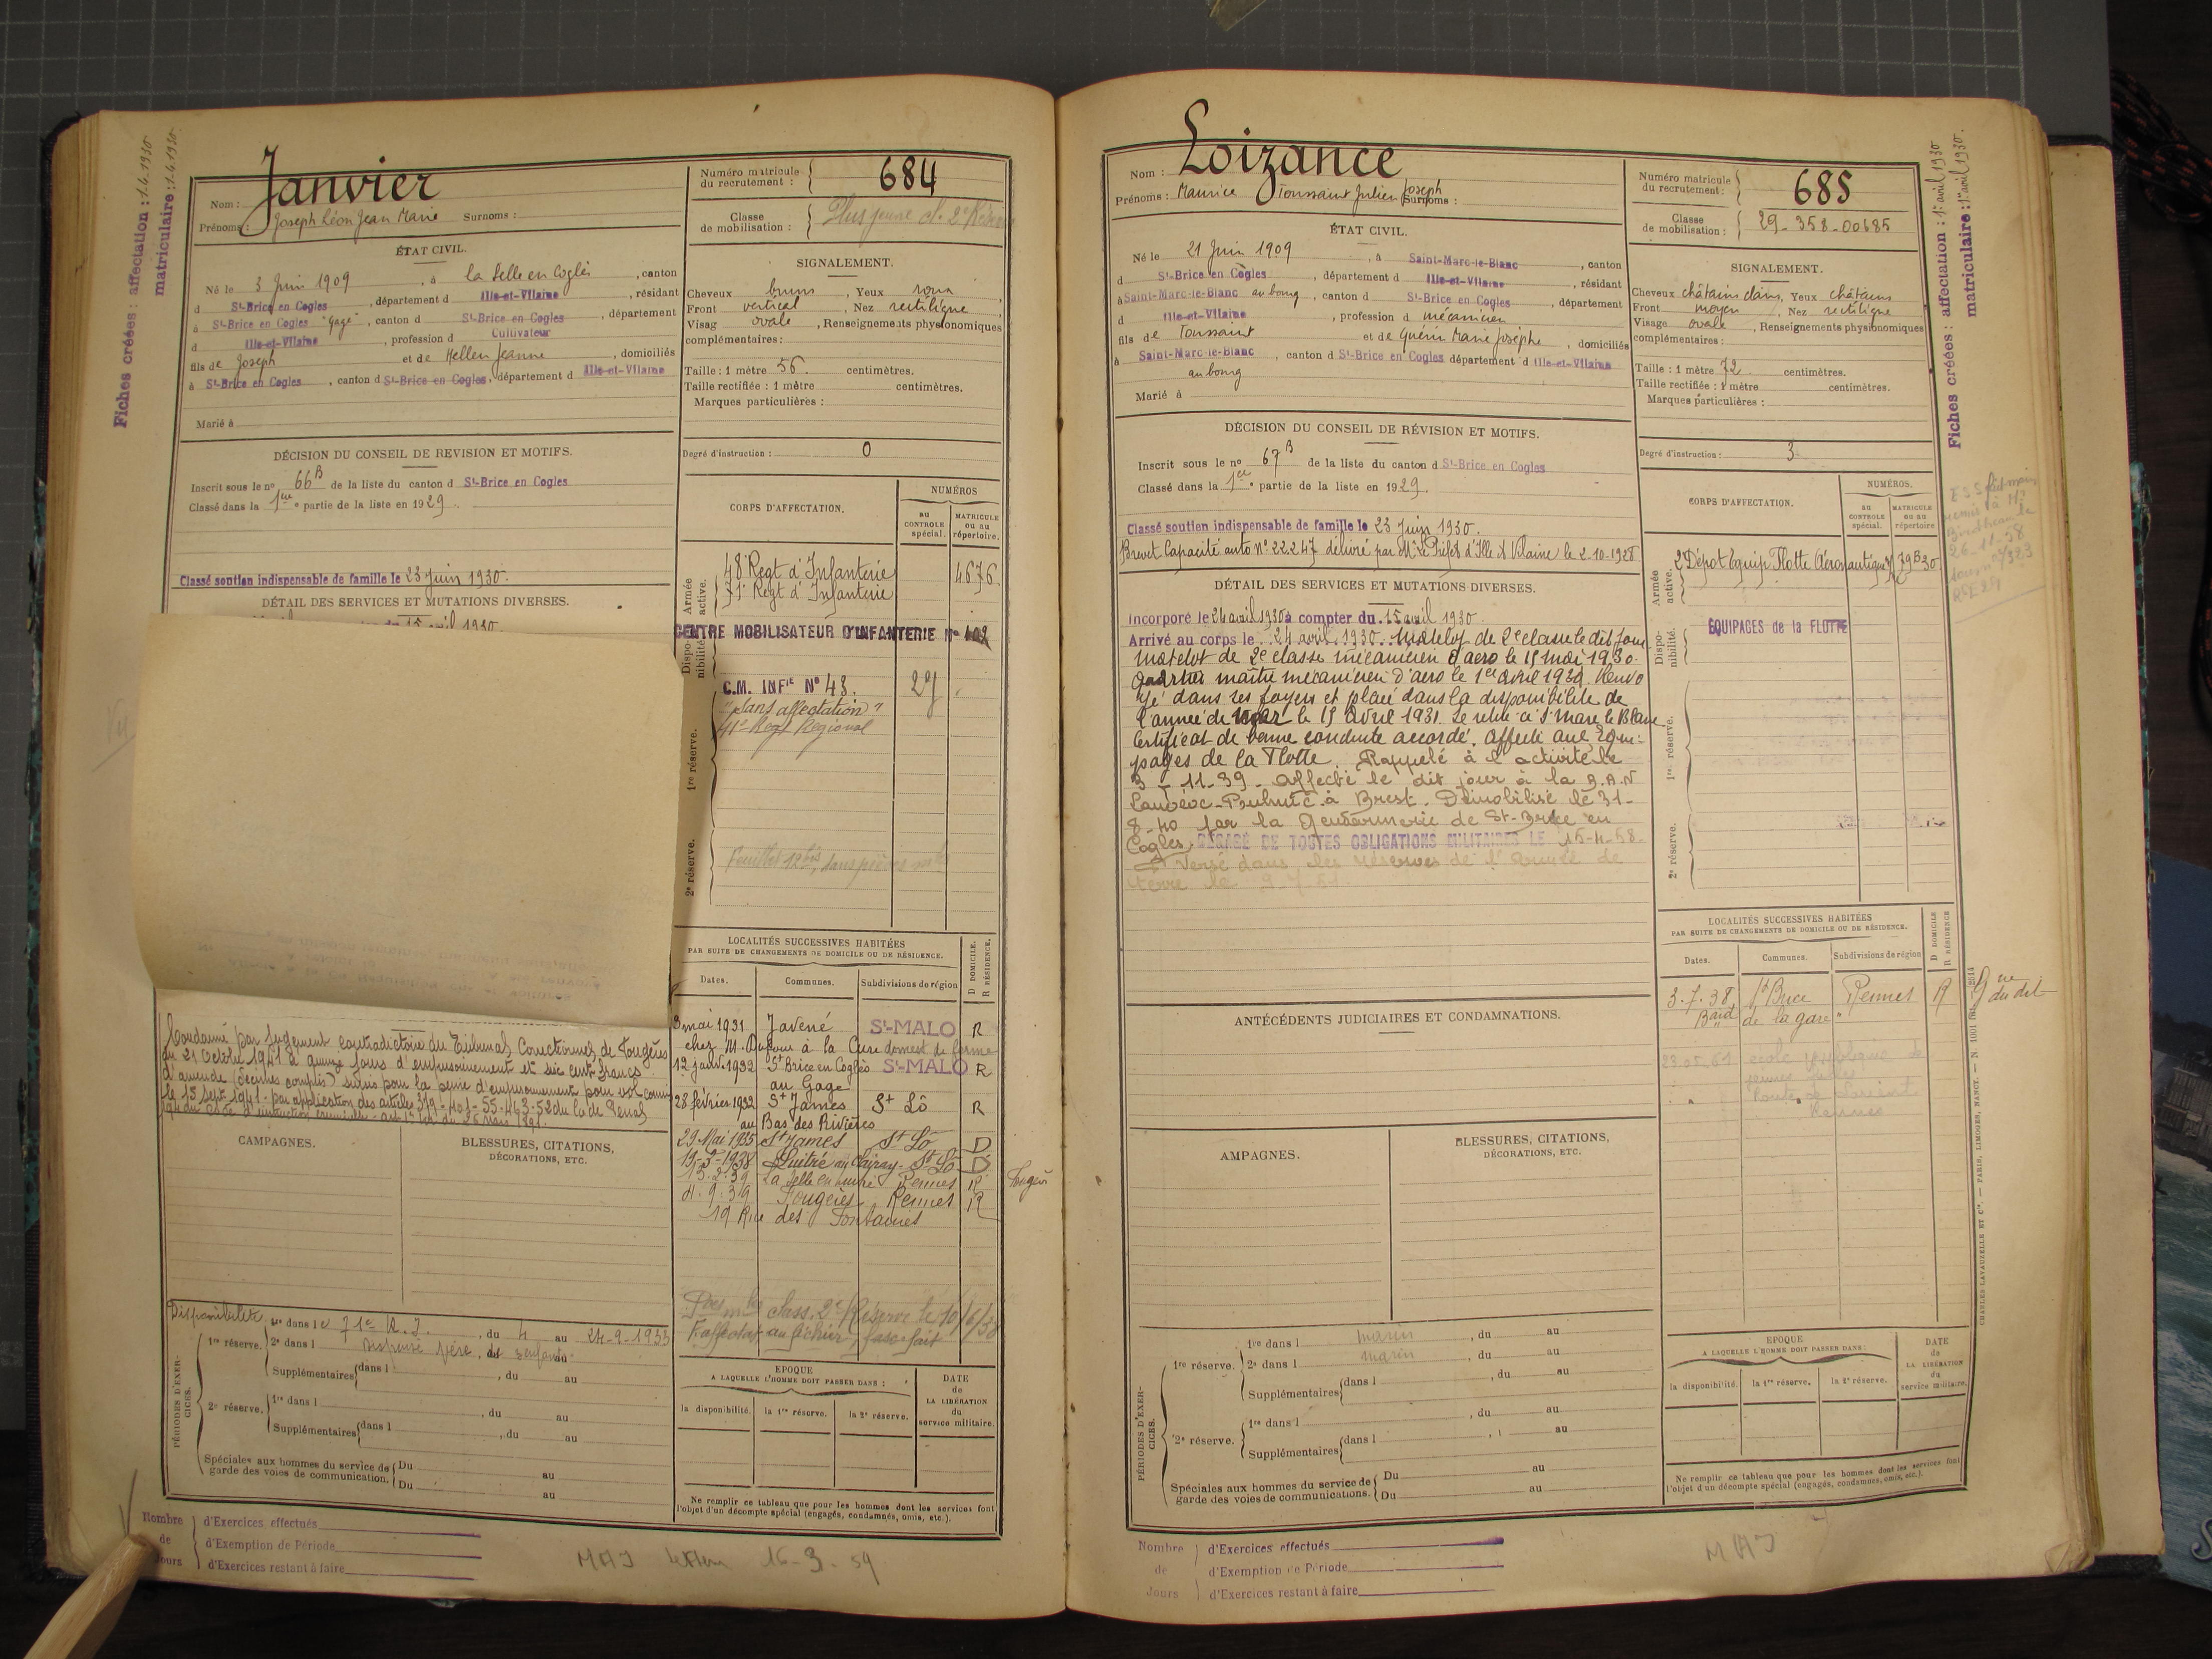 Fiches créées : affectation : 1.4.1930
matriculaire : 1.4.1930
Nom : Janvier
Prénoms : Joseph Léon Jean Marie Surnoms :
Numéro matricule
du recrutement : 684
Classe
de mobilisation : Plus jeune cl. 2e Réserve
ÉTAT CIVIL.
Né le 3 Juin 1909, à la Selle en Coglès, canton
d St-Brice en Cogles, département d Ille-et-Vilaine, résidant
à St-Brice en Cogles "Gage", canton d St-Brice en Cogles, département
d Ille-et-Vilaine, profession d Cultivateur
fils de Joseph et de Hellen Jeanne, domiciliés
à St-Brice en Cogles, canton d St-Brice en Cogles, département d Ille-et-Vilaine
Marié à
SIGNALEMENT.
Cheveux bruns, Yeux
Front vertical, Nez rectiligne
Visag ovale, Renseignements physionomiques
complémentaires :
Taille : 1 mètre 56. centimètres.
Taille rectifiée : 1 mètre centimètres.
Marques particulières :
Degré d'instruction : 0
DÉCISION DU CONSEIL DE REVISION ET MOTIFS.
Inscrit sous le no 66B de la liste du canton d St-Brice en Cogles
Classé dans la 1ère partie de la liste en 1929.
Classé soutien indispensable de famille le 23 Juin 1930.
DÉTAIL DES SERVICES ET MUTATIONS DIVERSES.
15 avril 1930.
CORPS D'AFFECTATION.
NUMÉROS
au
CONTROLE
spécial.
MATRICULE
ou au
répertoire.
Armée
active.
48e Regt d'Infanterie 4676.
71e Regt d'Infanterie
Dispo-
nibilité.
CENTRE MOBILISATEUR D'INFANTERIE No
1re réserve.
C.M. INFie No 48. 27
"Sans affectation"
41e Regt Régional
2e réserve.
Feuillet 12bis, dans pièces
LOCALITÉS SUCCESSIVES HABITÉES
PAR SUITE DE CHANGEMENTS DE DOMICILE OU DE RÉSIDENCE.
Dates. Communes. Subdivisions de région
D DOMICILE.
R RÉSIDENCE.
3 mai 1931 Javené St-MALO R
chez M. Dufour à la Cure domest. de ferme
12 janv. 1932 St Brice en Coglès St-MALO R
au Gage
28 février 1932 St James St Lô R
au Bas des Rivières
29 Mai 1935 St James St Lô D
19-3-1938 Luitré St Lô D
15.2.39 La Selle en Luitré Rennes R
4.9.39 Fougères Rennes R
19 Rue des Fontaines
Fougères
Condamné par Jugement contradictoire du Tribunal Correctionnel de Fougères
du 21 Octobre 1941 à quinze jours d'emprisonnement et six cent francs
d'amende (décimes compris) sursis pour la peine d'emprisonnement pour vol commis
le 15 Sept. 1941 - par application des articles 379-401-55-463-52 du Code Pénal
194 du Code d'instruction criminelle - art 1er loi du 26 mars 1891.
CAMPAGNES.
BLESSURES, CITATIONS,
DÉCORATIONS, ETC.
Disponibilité
PÉRIODES D'EXER-
CICES.
1re réserve.
1re dans l e 71e R.I., du 4 au 24-9-1933
2e dans l Dispensé Père de 3 enfants, du au
Supplémentaires dans l, du au
2e réserve.
1re dans l, du au
Supplémentaires dans l, du au
Spéciales aux hommes du service de
garde des voies de communication.
Du au
Du au
class. 2e Réserve le 10/6/38
EPOQUE
A LAQUELLE L'HOMME DOIT PASSER DANS :
la disponibilité. la 1re réserve. la 2e réserve.
DATE
de
LA LIBÉRATION
du
service militaire.
Ne remplir ce tableau que pour les hommes dont les services font
l'objet d'un décompte spécial (engagés, condamnés, omis, etc.).
Nombre
de
Jours
d'Exercices effectués
d'Exemption de Période
d'Exercices restant à faire
MAJ 16-3-59
Nom : Loizance
Prénoms : Maurice Toussaint Julien Joseph Surnoms :
Numéro matricule
du recrutement : 685
Classe
de mobilisation : 29-358-00685
Fiches créées : affectation : 1er avril 1930
matriculaire : 1er avril 1930.
ÉTAT CIVIL.
Né le 21 Juin 1909, à Saint-Marc-le-Blanc, canton
d St-Brice en Cogles, département d Ille-et-Vilaine, résidant
à Saint-Marc-le-Blanc au bourg, canton d St-Brice en Cogles, département
d Ille-et-Vilaine, profession d mécanicien
fils de Toussaint et de Guérin Marie Josèphe, domiciliés
à Saint-Marc-le-Blanc, canton d St-Brice en Cogles département d Ille-et-Vilaine
au bourg
Marié à
SIGNALEMENT.
Cheveux châtains clairs, Yeux châtains
Front moyen, Nez rectiligne
Visage ovale, Renseignements physionomiques
complémentaires :
Taille : 1 mètre 72 centimètres.
Taille rectifiée : 1 mètre centimètres.
Marques particulières :
Degré d'instruction : 3
DÉCISION DU CONSEIL DE RÉVISION ET MOTIFS.
Inscrit sous le no 67B de la liste du canton d St-Brice en Cogles
Classé dans la 1ère partie de la liste en 1929.
Classé soutien indispensable de famille le 23 Juin 1930.
Brevet Capacité auto no 22.247 délivré par Mr le Préfet d'Ille & Vilaine le 2-10-1928
DÉTAIL DES SERVICES ET MUTATIONS DIVERSES.
Incorporé le 24 avril 1930 à compter du 15 avril 1930
Arrivé au corps le 24 avril 1930. Matelot de 2e classe le dit jour
Matelot de 2e classe mécanicien d'aero le 15 mai 1930.
Quartier maître mécanicien d'aero le 1er avril 1930. Renvo
yé dans ses foyers et placé dans la disponibilité de
l'armée de mer le 15 Avril 1931. Se retire à St Marc le Blanc
Certificat de bonne conduite accordé. Affecté aux équi-
pages de la Flotte. Rappelé à l'activité le
3-11-39 - affecté le dit jour à la B.A.N
Lanvéoc-Poulmic à Brest. Démobilisé le 31-
8-40 par la Gendarmerie de St-Brice en
Cogles. DÉGAGÉ DE TOUTES OBLIGATIONS MILITAIRES LE 15-4-58-
Versé dans les réserves de l'armée de
terre le
CORPS D'AFFECTATION.
NUMÉROS.
au
CONTROLE
spécial.
MATRICULE
ou au
répertoire.
Armée
active.
2e Dépot Equip. Flotte Aéronautique
Dispo-
nibilité.
EQUIPAGES de la FLOTTE
1re réserve.
2e réserve.
LOCALITÉS SUCCESSIVES HABITÉES
PAR SUITE DE CHANGEMENTS DE DOMICILE OU DE RÉSIDENCE.
Dates. Communes. Subdivisions de région
D DOMICILE
R RÉSIDENCE
3.7.38 St Brice Rennes R
Bard de la gare "
école publique de
jeunes filles
Route de Lorient
Rennes
ANTÉCÉDENTS JUDICIAIRES ET CONDAMNATIONS.
AMPAGNES.
BLESSURES, CITATIONS,
DÉCORATIONS, ETC.
PÉRIODES D'EXER-
CICES.
1re réserve.
1re dans l marin, du au
2e dans l marin, du au
Supplémentaires dans l, du au
2e réserve.
1re dans l, du au
Supplémentaires dans l, au
Spéciales aux hommes du service de
garde des voies de communications.
Du au
Du au
EPOQUE
A LAQUELLE L'HOMME DOIT PASSER DANS :
la disponibilité. la 1re réserve. la 2e réserve.
DATE
de
LA LIBÉRATION
du
service militaire.
Ne remplir ce tableau que pour les hommes dont les services font
l'objet d'un décompte spécial (engagés, condamnés, omis, etc.).
CHARLES-LAVAUZELLE ET Cie. — PARIS, LIMOGES, NANCY. — N. 1001
Nombre
de
Jours
d'Exercices effectués
d'Exemption de Période
d'Exercices restant à faire
MAJ